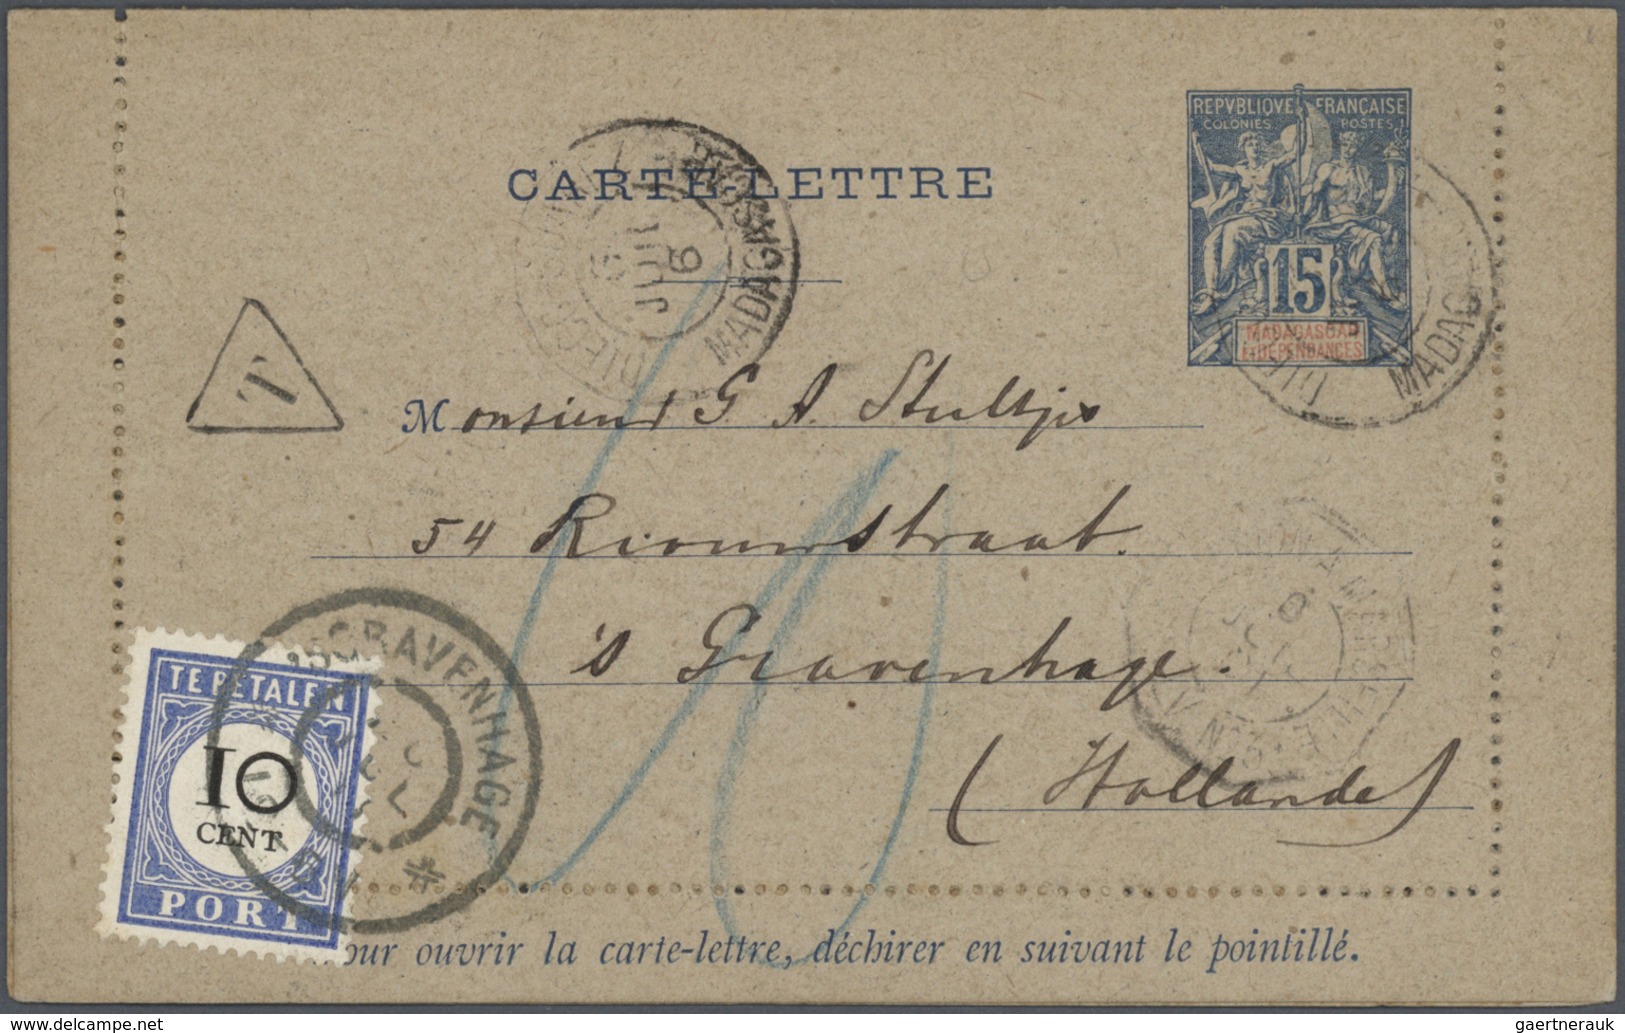 REPVBLIQVE FRANÇAISE
COLONIES POSTES
15
MADAGASCAR
ET DÉPENDANCES
CARTE-LETTRE
MADAGASCAR
6
JUIL
MADAG
T
Monsieur G. A. Stultjes
54 Riouwstraat.
's Gravenhage.
(Hollande)
10
'SGRAVENHAGE
TE BETALEN
10
CENT
PORT
Pour ouvrir la carte-lettre, déchirer en suivant le pointillé.
gaertnerauk @ delcampe.net